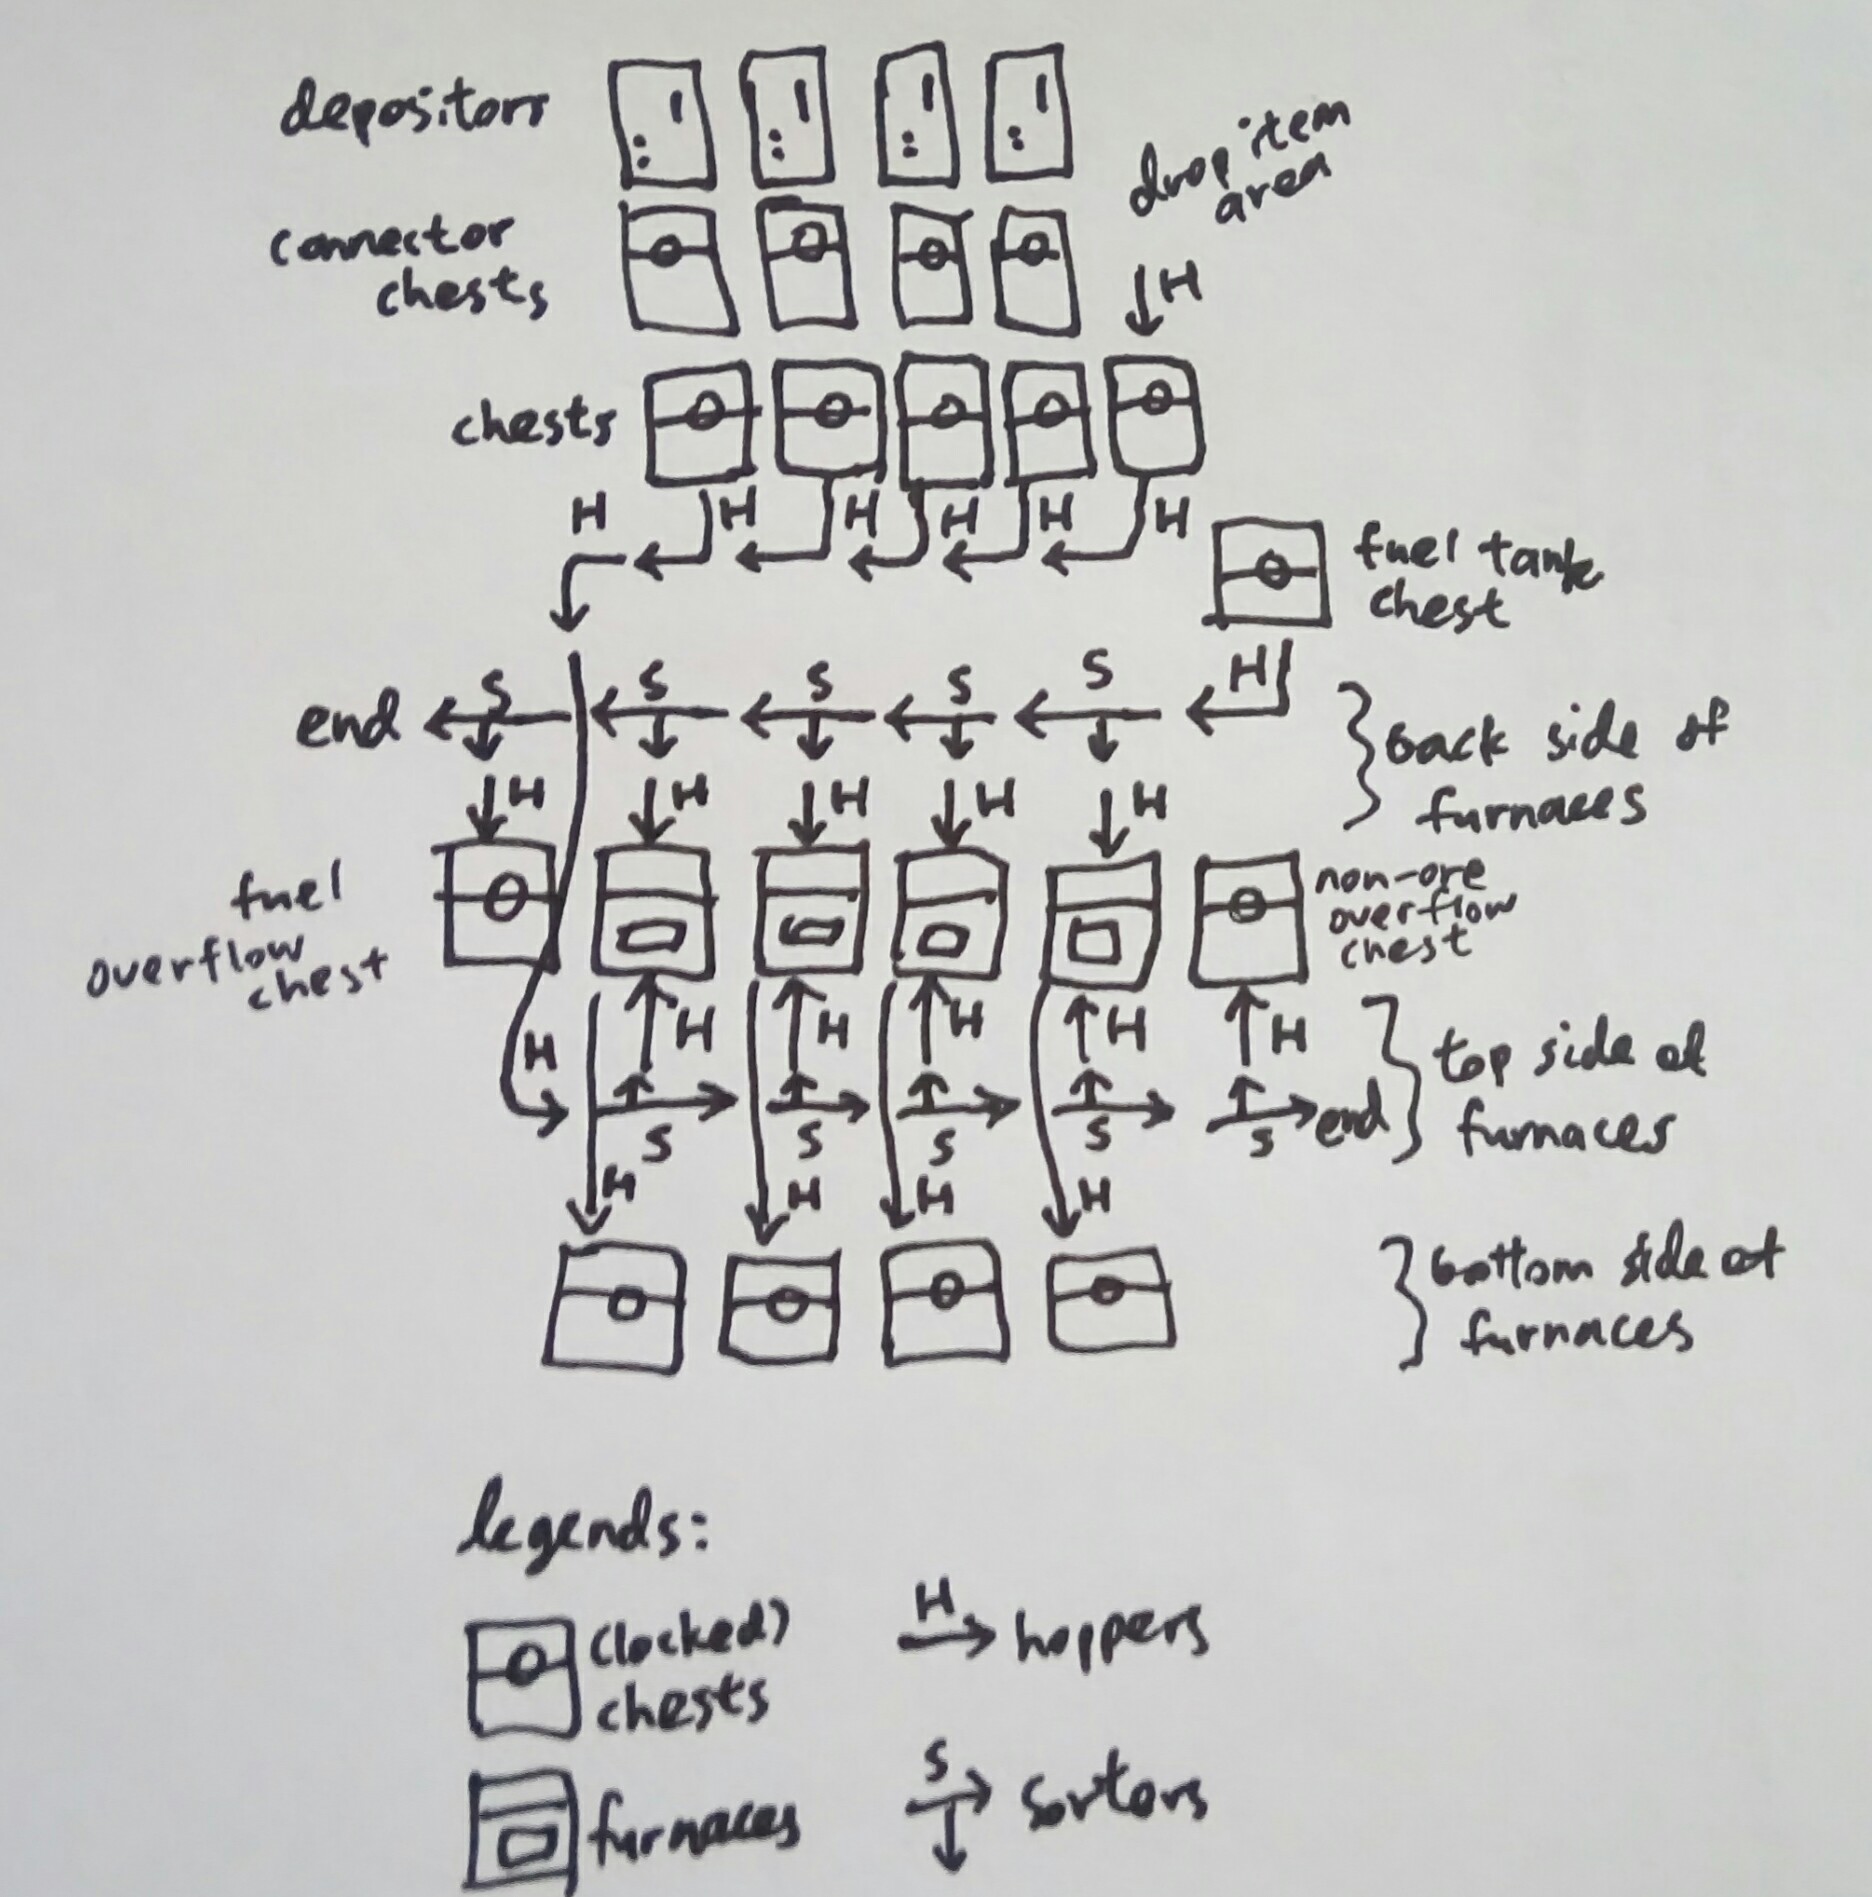 depositors
drop item
area
connector
chests
H
chests
H H H H H H
fuel tank
chest
S S S S S H
end
back side of
furnaces
H H H H H
fuel
overflow
chest
non-ore
overflow
chest
H H H H H H
top side of
furnaces
S S S S S end
H H H H
bottom side of
furnaces
legends:
(locked)
chests
H
hoppers
furnaces
S
sortors